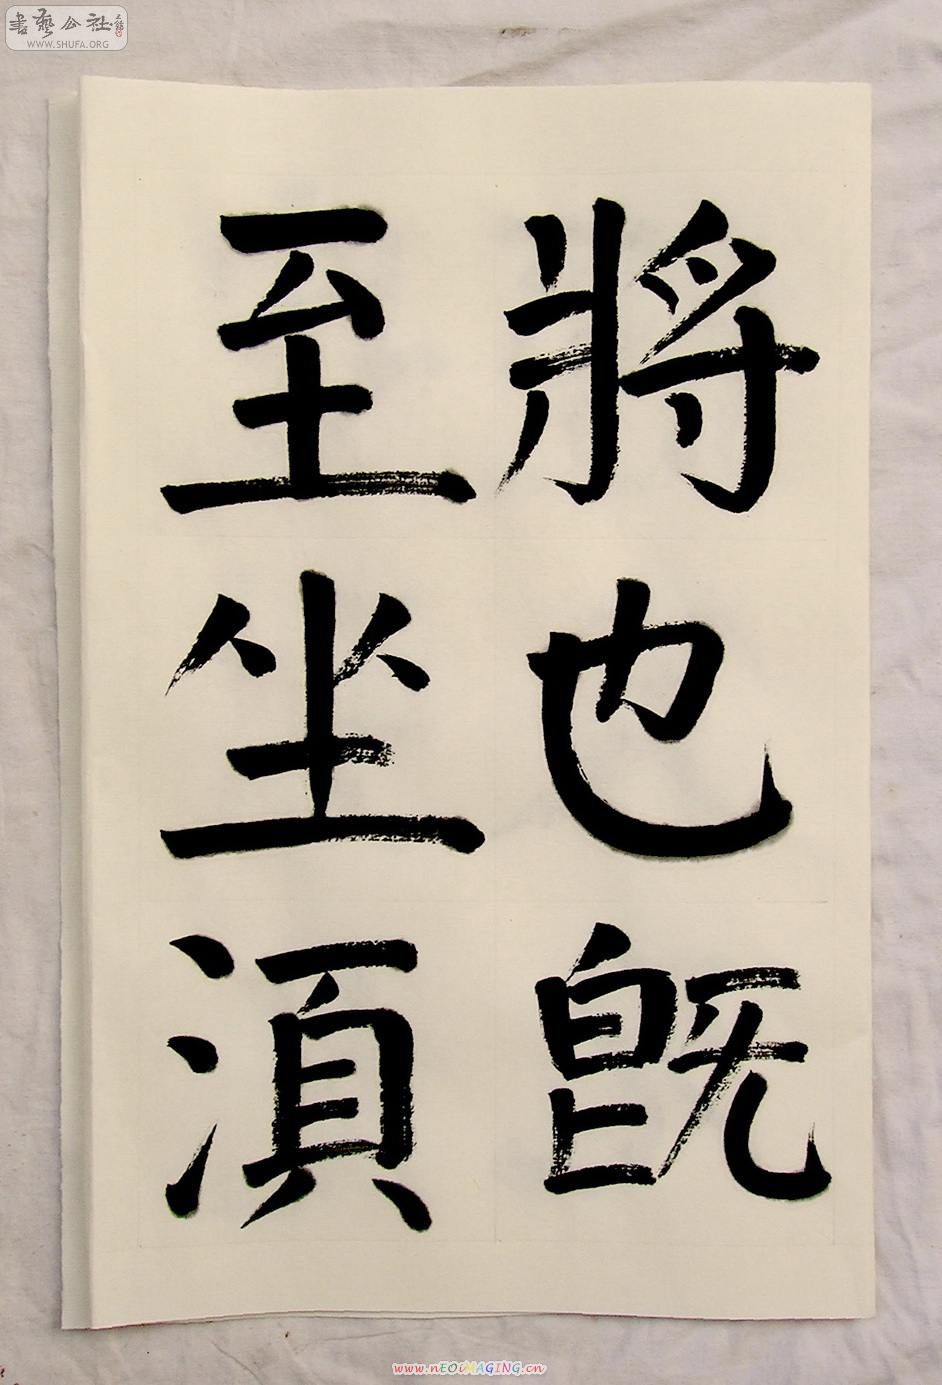 書藝公社
WWW.SHUFA.ORG
將也既
至坐須
www.nEOiMAGING.cn